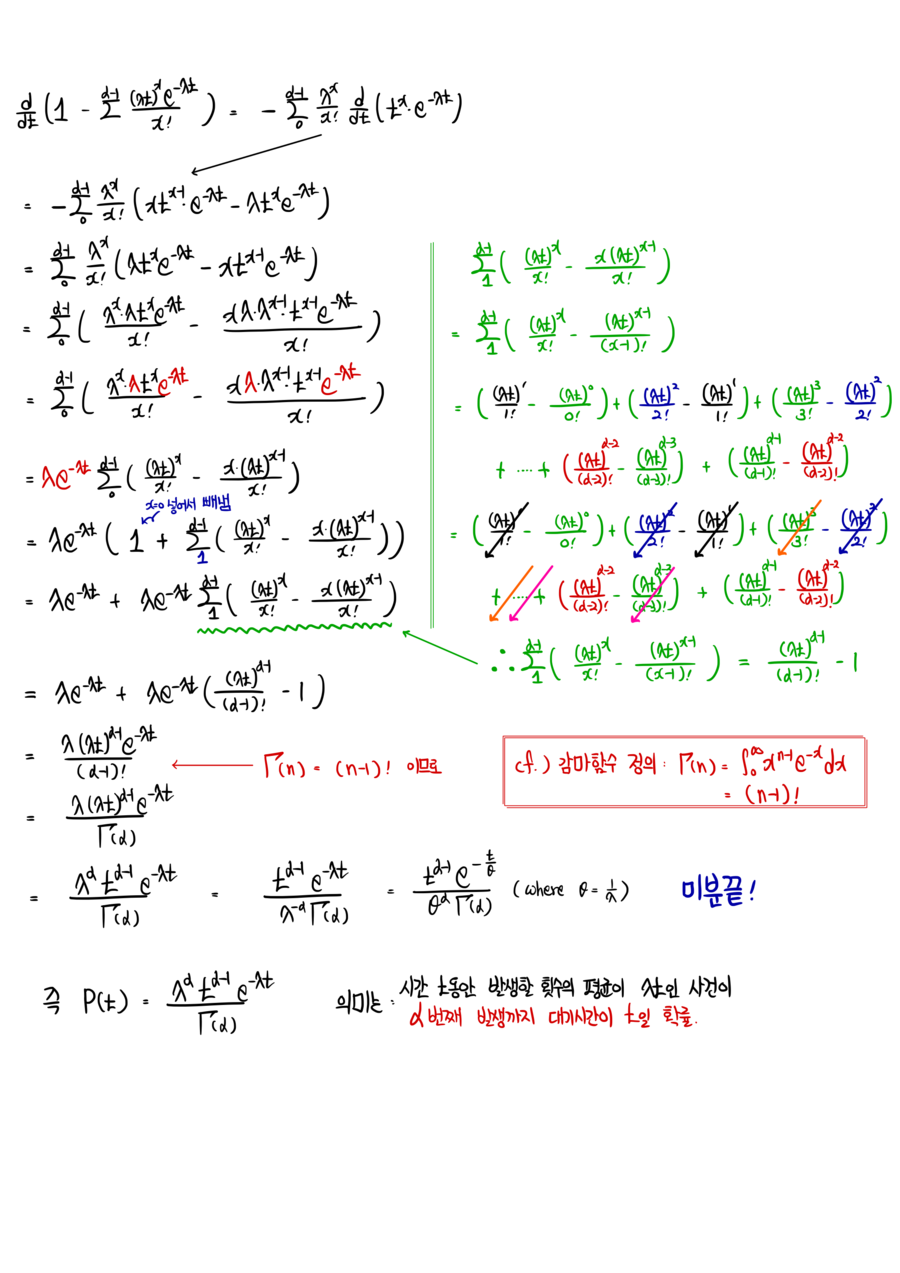 d/dt (1 - Σ_0^{α-1} (λt)^x e^{-λt} / x!) = - Σ_0^{α-1} λ^x/x! d/dt (t^x · e^{-λt})
= - Σ_0^{α-1} λ^x/x! (xt^{x-1} · e^{-λt} - λt^x e^{-λt})
= Σ_0^{α-1} λ^x/x! (λt^x e^{-λt} - xt^{x-1} e^{-λt})
= Σ_0^{α-1} (λ^x · λt^x e^{-λt} / x! - xλ · λ^{x-1} · t^{x-1} e^{-λt} / x!)
= Σ_0^{α-1} (λ^x · λt^x e^{-λt} / x! - xλ · λ^{x-1} · t^{x-1} e^{-λt} / x!)
= λe^{-λt} Σ_0^{α-1} ((λt)^x / x! - x · (λt)^{x-1} / x!)
x=0 넣어서 빼냄
= λe^{-λt} (1 + Σ_1^{α-1} ((λt)^x / x! - x · (λt)^{x-1} / x!))
= λe^{-λt} + λe^{-λt} Σ_1^{α-1} ((λt)^x / x! - x(λt)^{x-1} / x!)
Σ_1^{α-1} ((λt)^x / x! - x(λt)^{x-1} / x!)
= Σ_1^{α-1} ((λt)^x / x! - (λt)^{x-1} / (x-1)!)
= ((λt)^1 / 1! - (λt)^0 / 0!) + ((λt)^2 / 2! - (λt)^1 / 1!) + ((λt)^3 / 3! - (λt)^2 / 2!)
+ ···· + ((λt)^{α-2} / (α-2)! - (λt)^{α-3} / (α-3)!) + ((λt)^{α-1} / (α-1)! - (λt)^{α-2} / (α-2)!)
= ((λt)^1 / 1! - (λt)^0 / 0!) + ((λt)^2 / 2! - (λt)^1 / 1!) + ((λt)^3 / 3! - (λt)^2 / 2!)
+ ···· + ((λt)^{α-2} / (α-2)! - (λt)^{α-3} / (α-3)!) + ((λt)^{α-1} / (α-1)! - (λt)^{α-2} / (α-2)!)
∴ Σ_1^{α-1} ((λt)^x / x! - (λt)^{x-1} / (x-1)!) = (λt)^{α-1} / (α-1)! - 1
= λe^{-λt} + λe^{-λt} ((λt)^{α-1} / (α-1)! - 1)
= λ(λt)^{α-1} e^{-λt} / (α-1)!
Γ(n) = (n-1)! 이므로
cf.) 감마함수 정의 : Γ(n) = ∫_0^∞ x^{n-1} e^{-x} dx
= (n-1)!
= λ(λt)^{α-1} e^{-λt} / Γ(α)
= λ^α t^{α-1} e^{-λt} / Γ(α) = t^{α-1} e^{-λt} / λ^{-α} Γ(α) = t^{α-1} e^{-t/θ} / θ^α Γ(α) (where θ = 1/λ) 미분끝!
즉 P(t) = λ^α t^{α-1} e^{-λt} / Γ(α) 의미는 : 시간 t동안 발생한 횟수의 평균이 λt인 사건이
α번째 발생까지 대기시간이 t일 확률.